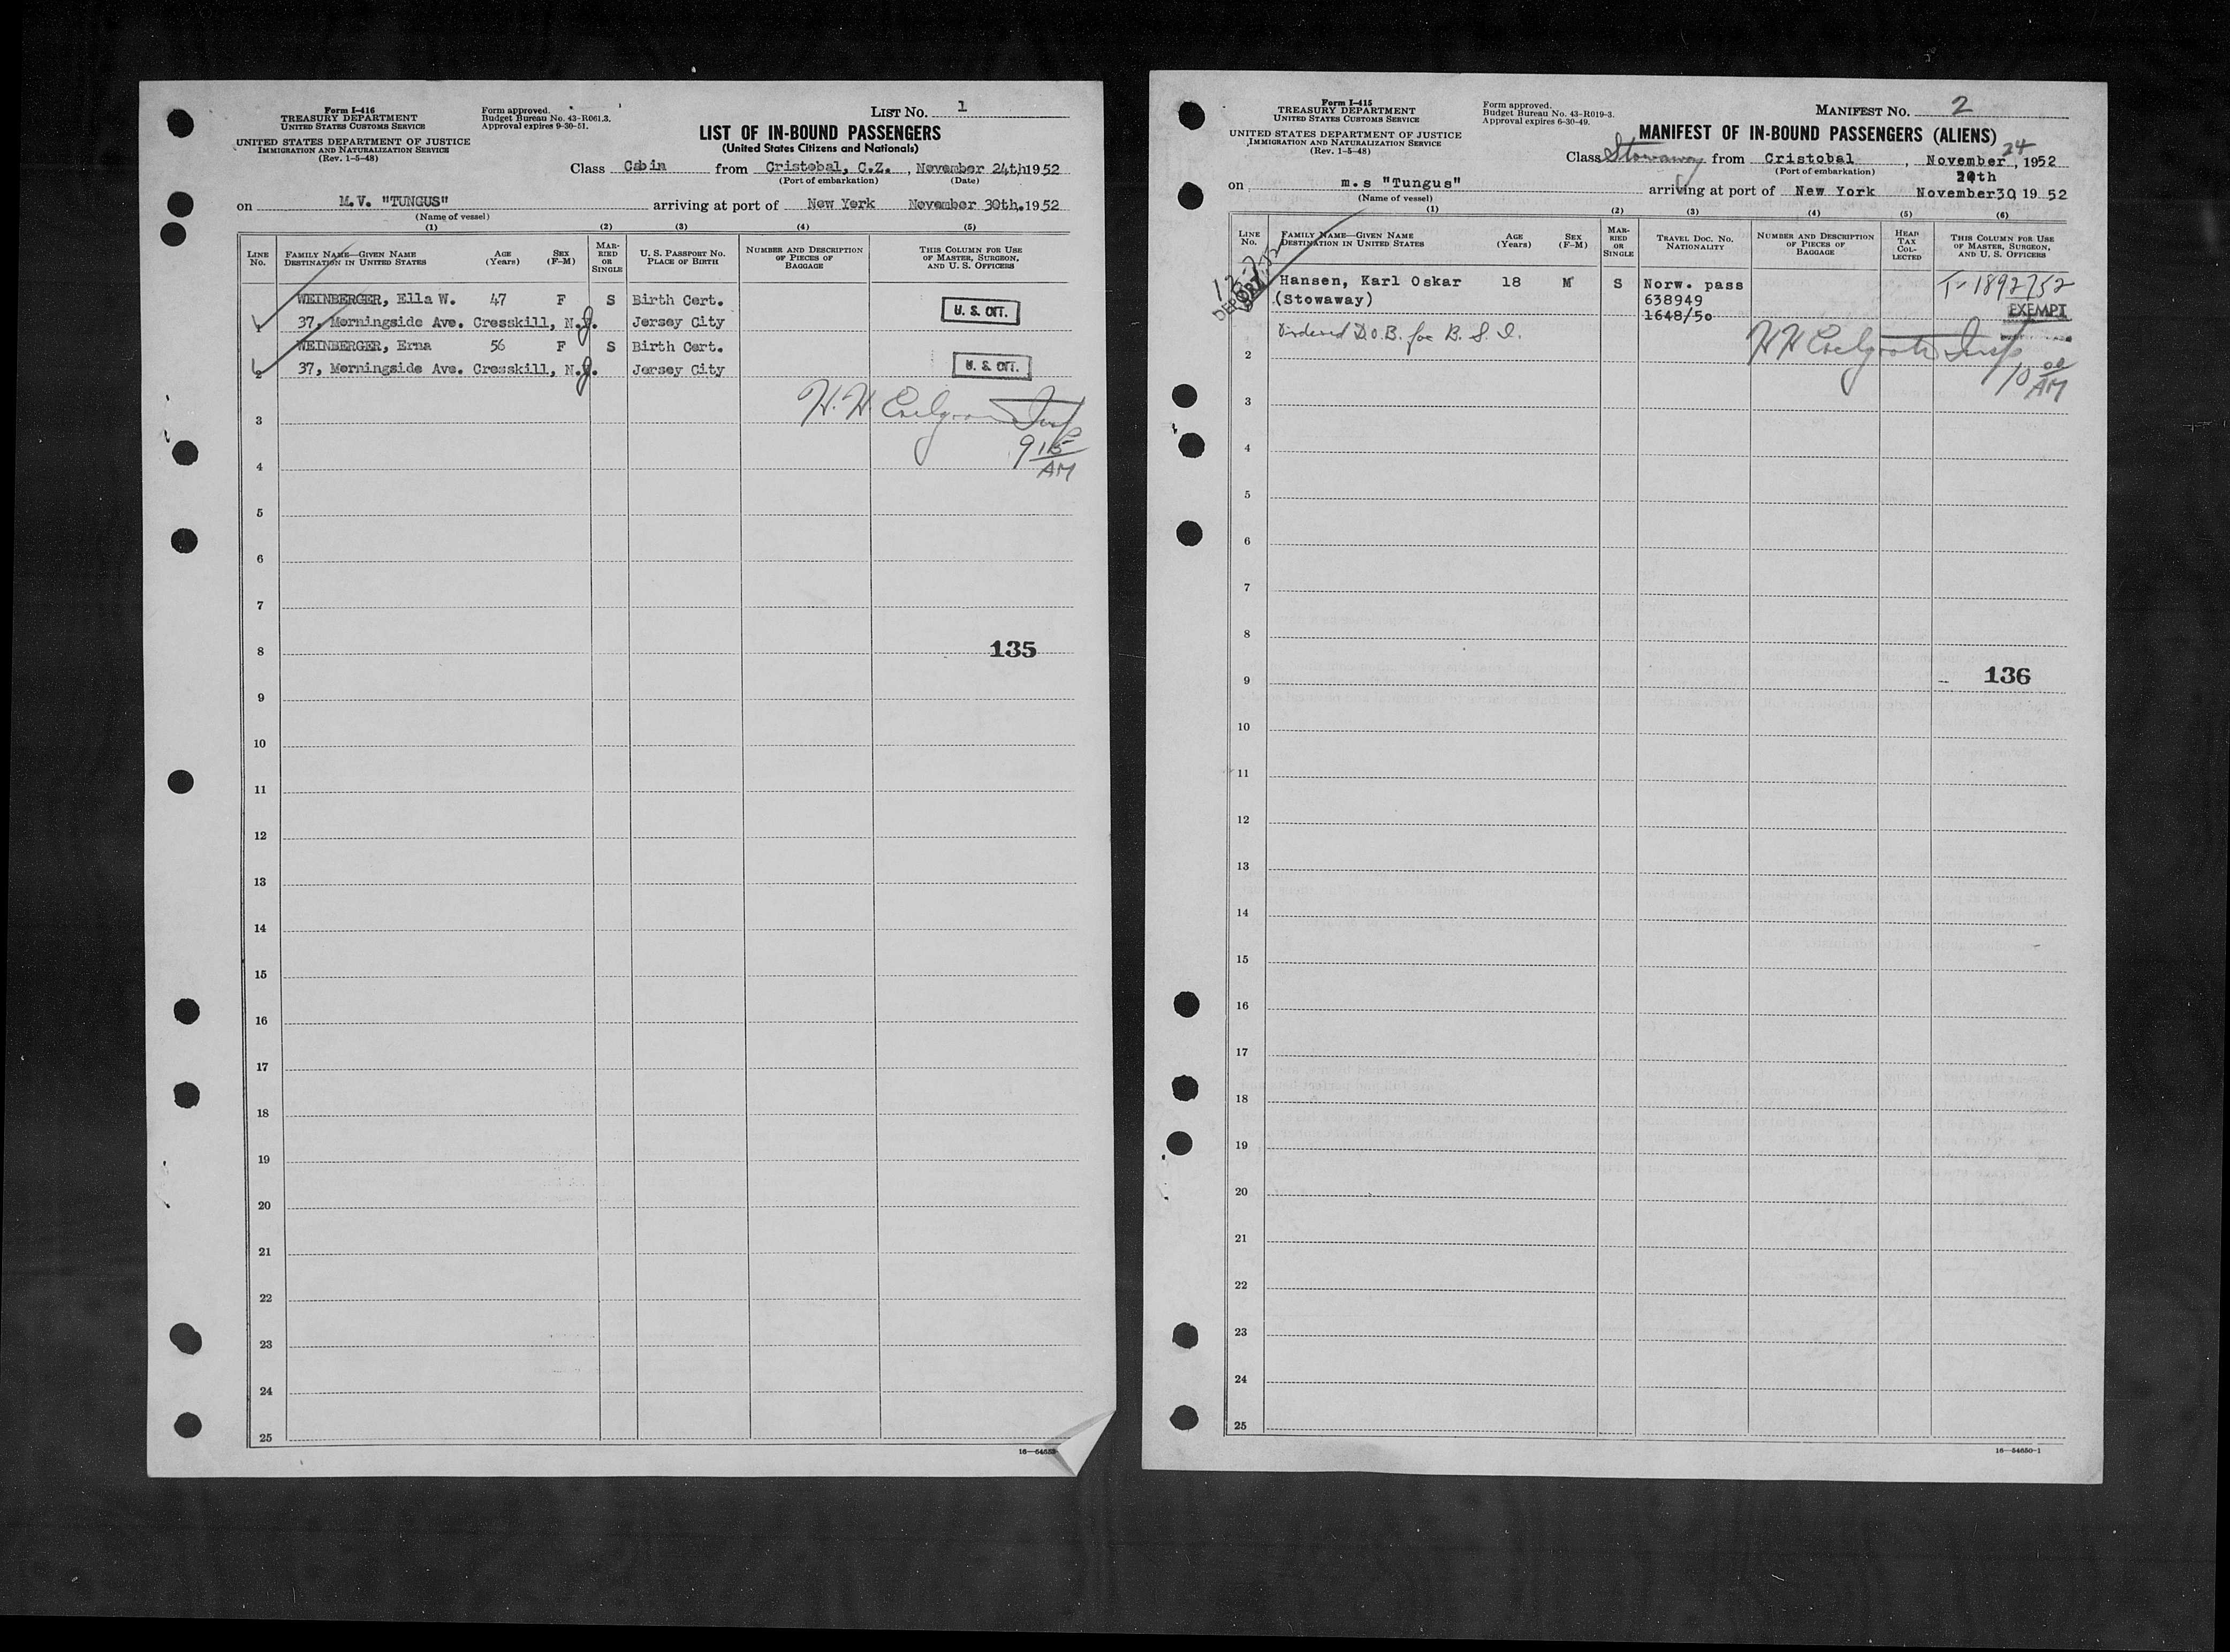 Form I-416
TREASURY DEPARTMENT
UNITED STATES CUSTOMS SERVICE
UNITED STATES DEPARTMENT OF JUSTICE
IMMIGRATION AND NATURALIZATION SERVICE
(Rev. 1-5-48)
Form approved.
Budget Bureau No. 43-R061.3.
Approval expires 9-30-51.
LIST NO. 1
LIST OF IN-BOUND PASSENGERS
(United States Citizens and Nationals)
Class Cabin from Cristobal, C.Z. , November 24th 1952
(Port of embarkation) (Date)
on M.V. "TUNGUS" arriving at port of New York November 30th. 1952
(Name of vessel)
(1) (2) (3) (4) (5)
LINE NO.
FAMILY NAME—GIVEN NAME
DESTINATION IN UNITED STATES
AGE (Years)
SEX (F-M)
MARRIED OR SINGLE
U. S. PASSPORT NO.
PLACE OF BIRTH
NUMBER AND DESCRIPTION OF PIECES OF BAGGAGE
THIS COLUMN FOR USE OF MASTER, SURGEON, AND U. S. OFFICERS
WEINBERGER, Ella W. 47 F S Birth Cert.
1 37, Morningside Ave. Cresskill, N.J. Jersey City U. S. CIT.
WEINBERGER, Erna 56 F S Birth Cert.
2 37, Morningside Ave. Cresskill, N.J. Jersey City U. S. CIT.
H. H. Insp
9 15 AM
3
4
5
6
7
8 135
9
10
11
12
13
14
15
16
17
18
19
20
21
22
23
24
25
Form I-415
TREASURY DEPARTMENT
UNITED STATES CUSTOMS SERVICE
UNITED STATES DEPARTMENT OF JUSTICE
IMMIGRATION AND NATURALIZATION SERVICE
(Rev. 1-5-48)
Form approved.
Budget Bureau No. 43-R019-3.
Approval expires 6-30-49.
MANIFEST NO. 2
MANIFEST OF IN-BOUND PASSENGERS (ALIENS)
Class Stowaway from Cristobal , November 24 , 1952
(Port of embarkation)
on m.s "Tungus" arriving at port of New York November 30 19 52
(Name of vessel)
(1) (2) (3) (4) (5) (6)
LINE NO.
FAMILY NAME—GIVEN NAME
DESTINATION IN UNITED STATES
AGE (Years)
SEX (F-M)
MARRIED OR SINGLE
TRAVEL DOC. NO.
NATIONALITY
NUMBER AND DESCRIPTION OF PIECES OF BAGGAGE
HEAD TAX COLLECTED
THIS COLUMN FOR USE OF MASTER, SURGEON, AND U. S. OFFICERS
Hansen, Karl Oskar 18 M S Norw. pass T-1892752
(Stowaway) 638949 EXEMPT
1648/50
Ordered D.O.B. for B. S. I.
H H Insp
10 00 AM
2
3
4
5
6
7
8
9 136
10
11
12
13
14
15
16
17
18
19
20
21
22
23
24
25
16—54650-1